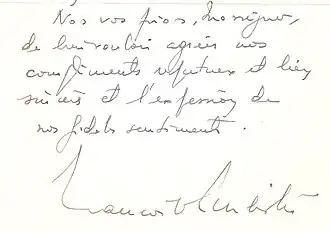 Nos vos prions, Monsigneur,
de bien vouloir agréer nos
compliments respectueux et bien
sincères et l'expression de
nos fidels sentiments.